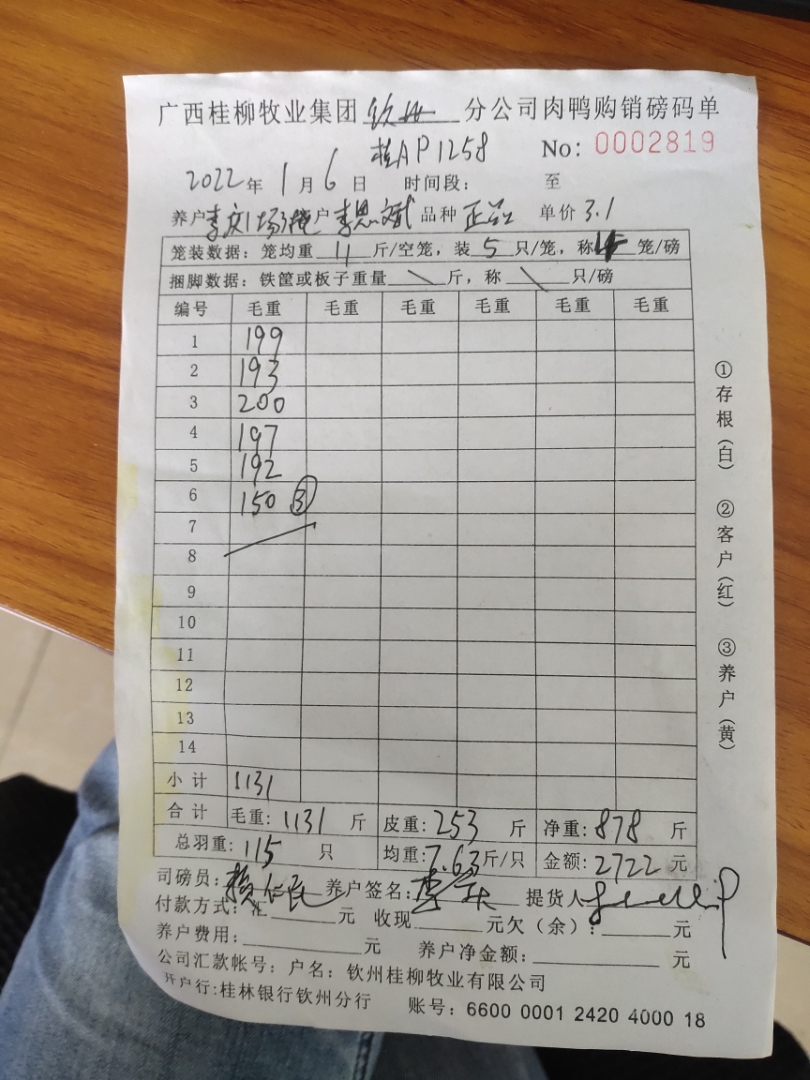 广西桂柳牧业集团 钦州 分公司肉鸭购销磅码单
桂AP1258 No: 0002819
2022 年 1 月 6 日 时间段: 至
养户 李 场 户 李思斌 品种 正品 单价 3.1
笼装数据: 笼均重 11 斤/空笼, 装 5 只/笼, 称 笼/磅
捆脚数据: 铁筐或板子重量 \ 斤, 称 \ 只/磅
编号 毛重 毛重 毛重 毛重 毛重 毛重
1 199
2 193
3 200
4 197
5 192
6 150 ③
7
8
9
10
11
12
13
14
小计 1131
合计 毛重: 1131 斤 皮重: 253 斤 净重: 878 斤
总羽重: 115 只 均重: 7.63 斤/只 金额: 2722 元
司磅员: 养户签名: 李 提货人
付款方式: 汇 元 收现 元欠(余): 元
养户费用: 元 养户净金额: 元
公司汇款帐号: 户名: 钦州桂柳牧业有限公司
开户行:桂林银行钦州分行 账号: 6600 0001 2420 4000 18
①存根(白) ②客户(红) ③养户(黄)